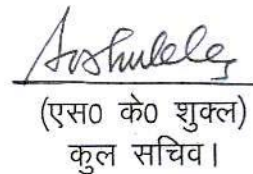 (एस0 के0 शुक्ल)
कुल सचिव।